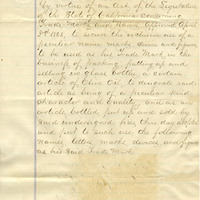 By virtue of an Act of the Legislature
of the State of California concerning
Trade Marks and Names approved April
3rd 1863, to secure the exclusive use of a
peculiar name, marks, device and figures
to be used as his Trade Mark in the
business of packing, putting up and
selling in glass bottles a certain
article of Olive Oil, to designate said
article as being of a peculiar kind
Character and Quality, and as an
article bottled put up and sold by
said undersigned files this day adopts
and put to such use, the following
names, letters, marks devices and figures
as his said Trade Mark